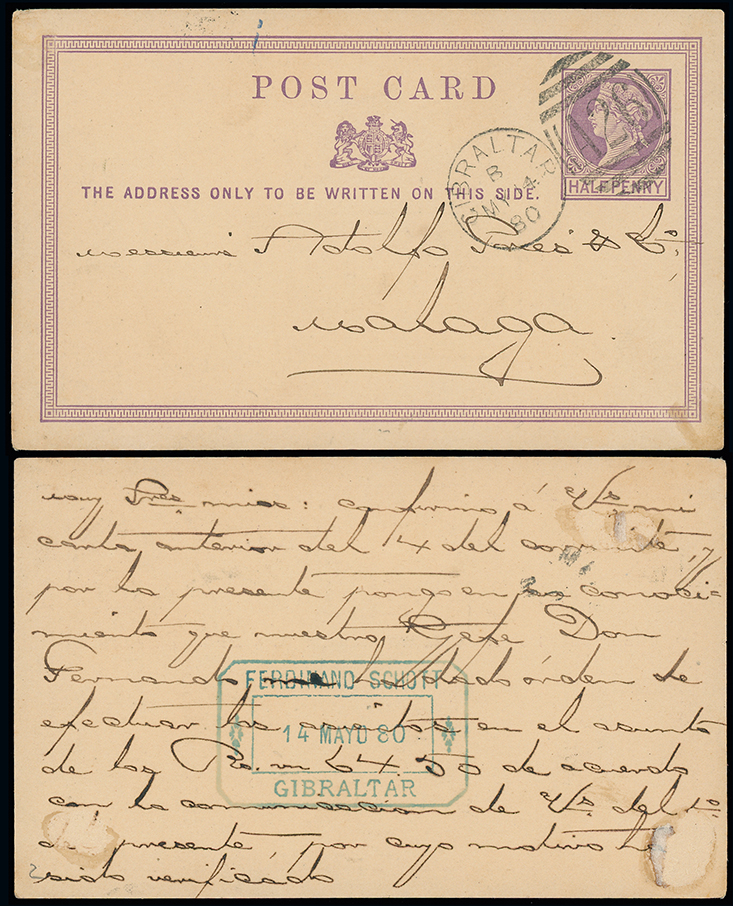 POST CARD
THE ADDRESS ONLY TO BE WRITTEN ON THIS SIDE.
HALFPENNY
GIBRALTAR
B
MY 4
80
Messieurs Adolfo Pries & Co.
Malaga
Muy Sres mios: confirmo á Vs mi
carta anterior del 4 del corriente, y
por la presente pongo en su conoci-
miento que nuestro Don
Fernando ha dado órden de
efectuar los en el asunto
de los Rs. vn 64.50 de acuerdo
con la comunicacion de Vs. del 1º
del presente, por cuyo motivo ha
sido verificado
FERDINAND SCHOTT
14 MAYO 80
GIBRALTAR